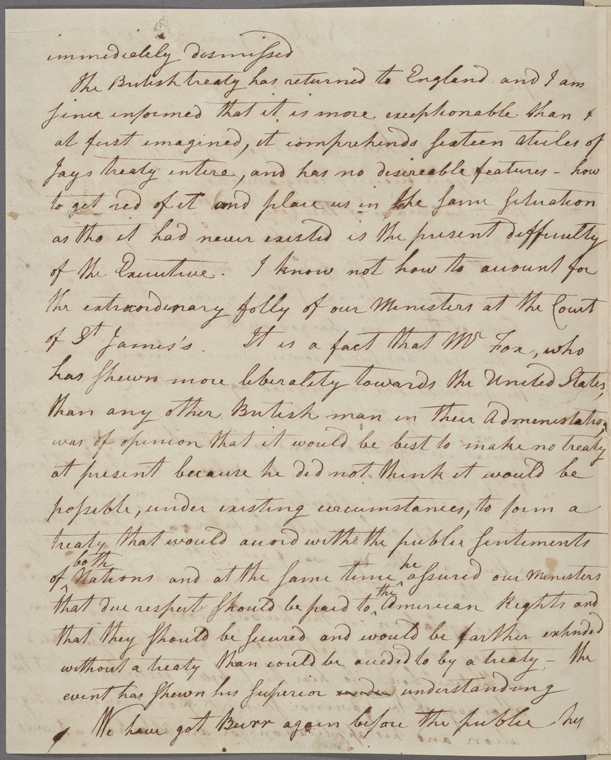 immediately dismissed
The British treaty has returned to England and I am
since informed that it is more exceptionable than I
at first imagined, it comprehends sixteen atules of
Jays treaty entire, and has no desireable features - how
to get red of it and place us in the same situation
as tho it had never existed is the present difficulty
of the Executive. I know not how to account for
the extraordinary folly of our Ministers at the Court
of St James's. It is a fact that Mr Fox, who
has shewn more liberality towards the United States,
than any other British man in their Administration,
was of opinion that it would be best to make no treaty
at present because he did not think it would be
possible, under existing circumstances, to form a
treaty that would accord with the public sentiments
both
of Nations and at the same time he assured our Ministers
that due respect should be paid to the American Rights and
that they should be secured and would be farther extended
without a treaty than could be acceded to by a treaty - the
event has shewn his superior understanding
We have got Burr again before the public his